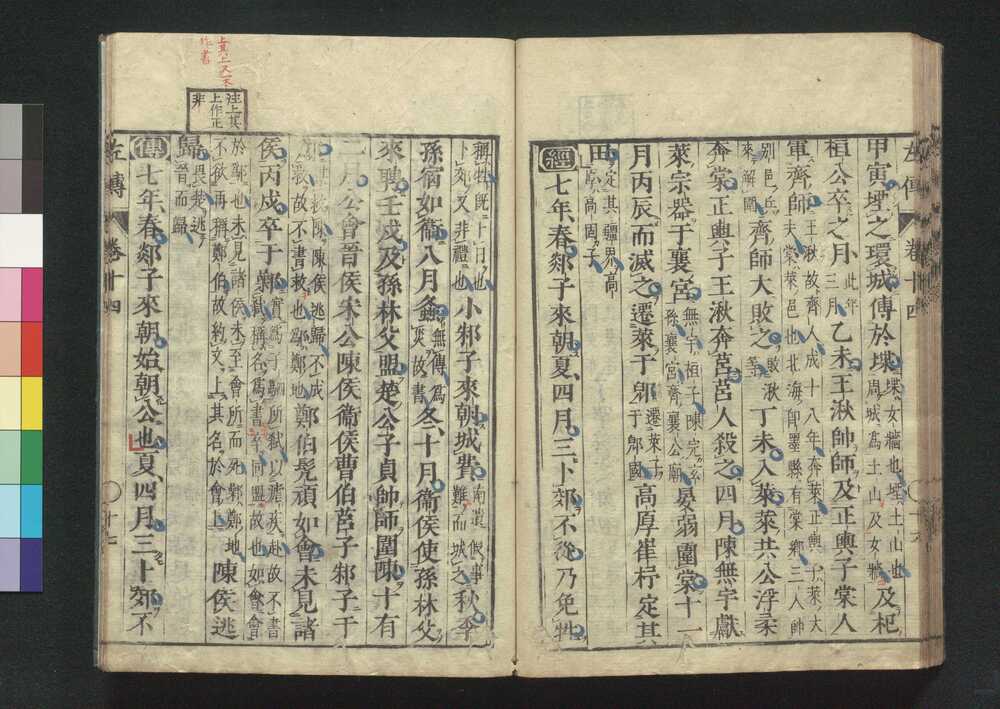 甲寅堙之環城傅於堞堞女牆也堙土山也周城爲土山及女牆及杞
桓公卒之月此年三月乙未王湫帥師及正輿子棠人
軍齊師王湫故齊人成十八年奔萊正輿子萊大夫棠萊邑也北海即墨縣有棠鄉三人帥
別邑兵來解圍齊師大敗之敗湫等丁未入萊萊共公浮柔
奔棠正輿子王湫奔莒莒人殺之四月陳無宇獻
萊宗器于襄宮無宇桓子陳完玄孫襄宮齊襄公廟晏弱圍棠十一
月丙辰而滅之遷萊于郳遷萊子于郳國高厚崔杼定其
田定其疆界高厚高固子
經七年春郯子來朝夏四月三卜郊不從乃免牲
稱牲既卜日也卜郊又非禮也小邾子來朝城費南遺假事難而城之秋季
孫宿如衞八月螽無傳爲災故書冬十月衞侯使孫林父
來聘壬戌及孫林父盟楚公子貞帥師圍陳十有
二月公會晉侯宋公陳侯衞侯曹伯莒子邾子于
鄬陳侯逃歸不成救故不書救也鄬鄭地鄭伯髡頑如會未見諸
侯丙戌卒于鄵實爲子駟所弑以瘧疾赴故不書弑稱名爲書卒同盟故也如會會
於鄬也未見諸侯未至會所而死鄵鄭地不欲再稱鄭伯故約文上其名於會上陳侯逃
歸畏楚逃晉而歸
傳七年春郯子來朝始朝公也夏四月三卜郊不
左傳
卷十四
十六
左傳
卷十四
十七
注上其上作正非
上其上又不作書